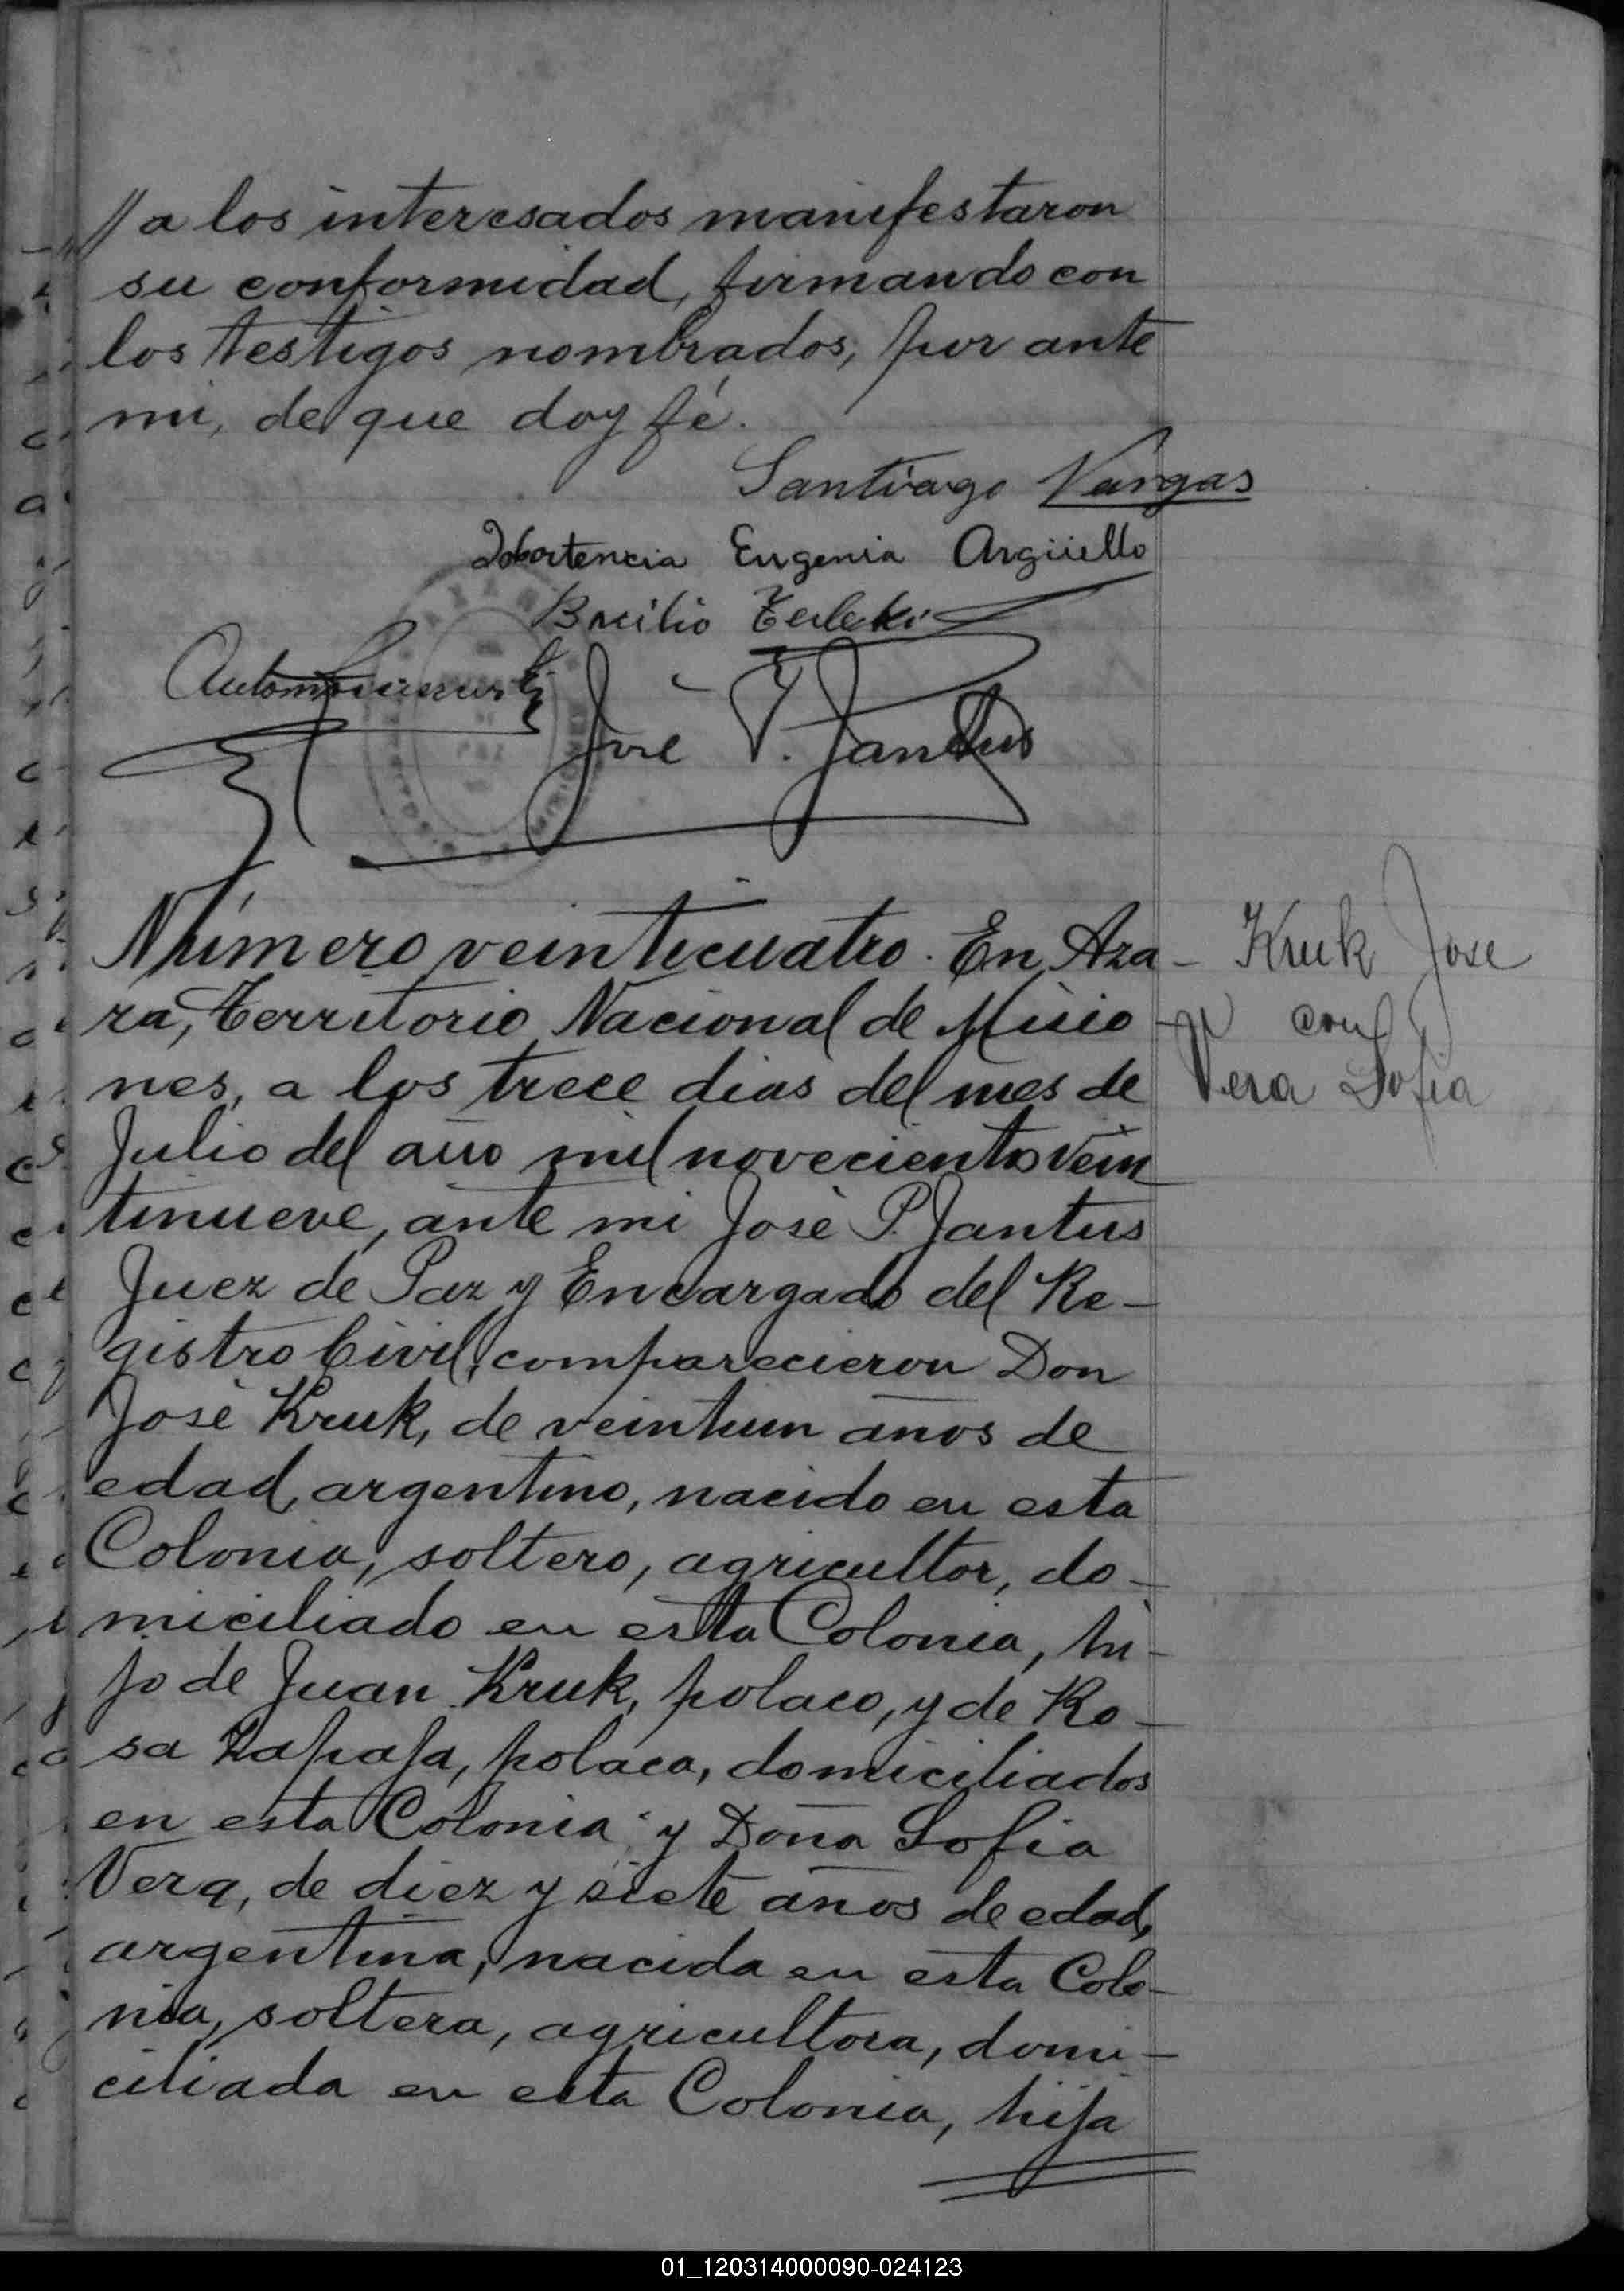 // a los interesados manifestaron
su conformidad, firmando con
los testigos nombrados, por ante
mi, de que doy fé.
Santiago Vargas
Hortencia Eugenia Argüello
Basilio Terlecki
José P. Jantus
Número veinticuatro. En Aza-
ra, Territorio Nacional de Misio-
nes, a los trece dias del mes de
Julio del año mil novecientos vein
tinueve, ante mi José P. Jantus
Juez de Paz y Encargado del Re-
gistro Civil, comparecieron Don
José Kruk, de veintiun años de
edad, argentino, nacido en esta
Colonia, soltero, agricultor, do-
miciliado en esta Colonia, hi-
jo de Juan Kruk, polaco, y de Ro-
sa Zapaja, polaca, domiciliados
en esta Colonia; y Doña Sofia
Vera, de diez y siete años de edad,
argentina, nacida en esta Colo-
nia, soltera, agricultora, domi-
ciliada en esta Colonia, hija
Kruk Jose
con
Vera Sofia
01_120314000090-024123